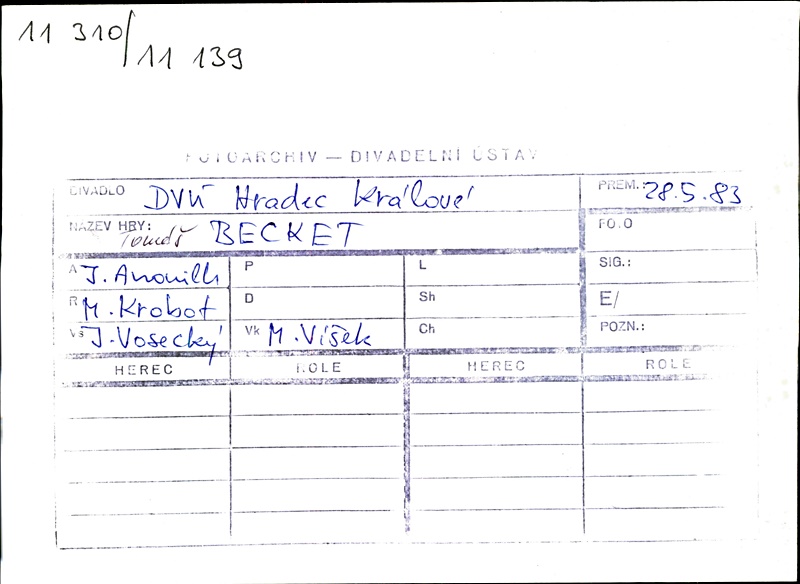 11 310/
11 139
FOTOARCHIV — DIVADELNÍ ÚSTAV
DIVADLO DVÚ Hradec Králové PREM.: 28.5.83
NÁZEV HRY: Tomáš BECKET FOTO
A J. Anouilh P L SIG.:
R M. Krobot D Sh E/
Vs J. Vosecký Vk M. Víšek Ch POZN.:
HEREC ROLE HEREC ROLE